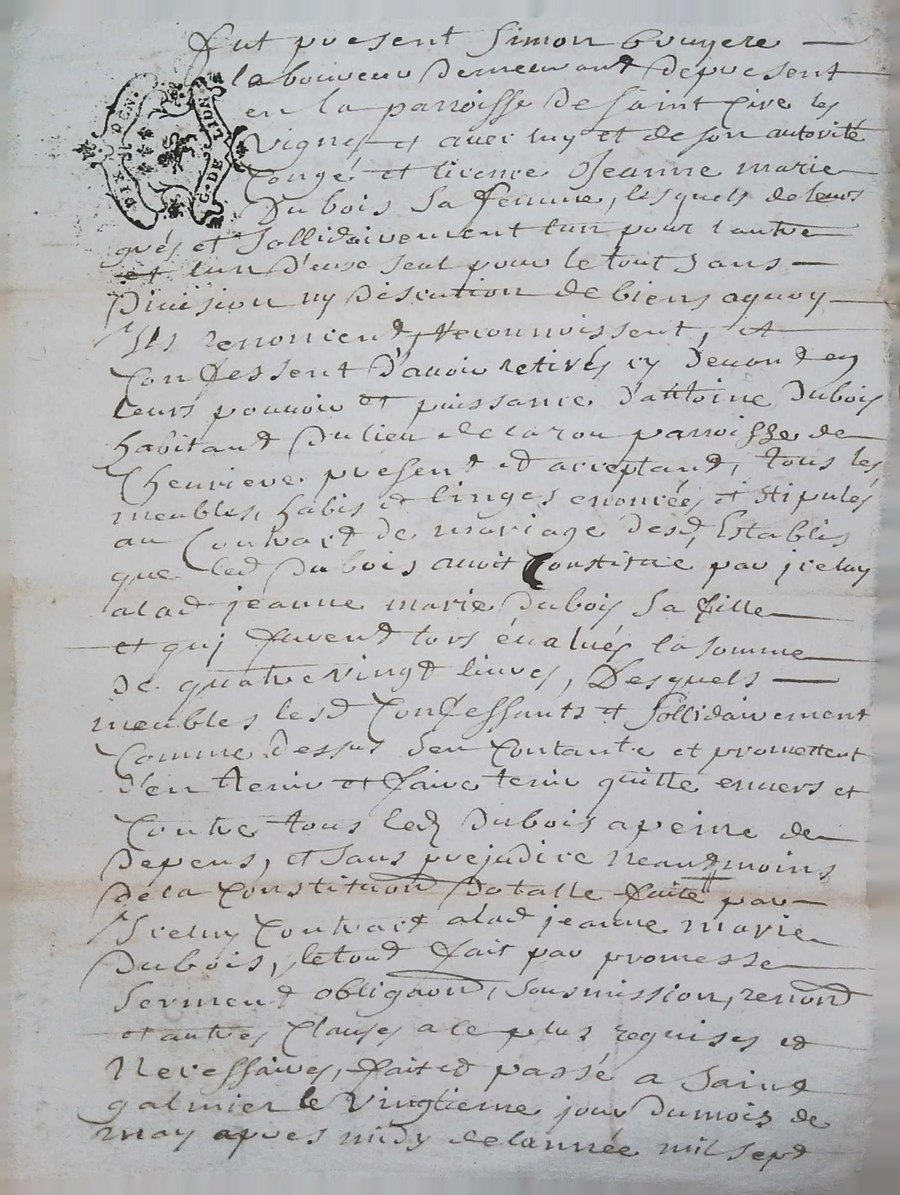 fut present Simon bruyere
DIX DEN.
G. DE LION
laboureur demeurant depresent
en la parroisse de saint Cire les
Vignes et avec luy et de son autorité
Congé et licence Jeanne marie
Dubois Sa femme, lesquels de leurs
grés et Sollidairement lun pour l'autre
et lun d'eux seul pour le tout Sans
Division ny Discution de biens aquoy
Ils renoncend, Reconnoissent, et
Confessent d'avoir retirés cy devand en
leurs pouvoir et puissance d'anttoine Dubois
habitand du lieu de parroisse de
Chevrieres present et acceptand, tous les
meubles, habis et linges enoncées et stipulés
au Contract de mariage desd. Establis
que led Dubois avoit Constitué par iceluy
alad jeanne marie Dubois Sa fille
et quj furend lors évalués la somme
de quatrevingt livres, Desquels
meubles lesd Confessants et Sollidairement
Comme dessus s'en Contante et promettent
d'en tenir et faire tenir quitte envers et
Contre tous led Dubois apeine de
Depens, et sans prejudice neandmoins
de la Constitution Dotalle faite par
Iceluy Contract alad jeanne marie
Dubois, le tout fait par promesse
Serment obligaond, Sousmission, renond
et autres Clauses a ce plus requises et
Necessaires, fait et passé a Saint
galmier le Vingtieme jour Du mois de
may apres midy de lannée mil sept